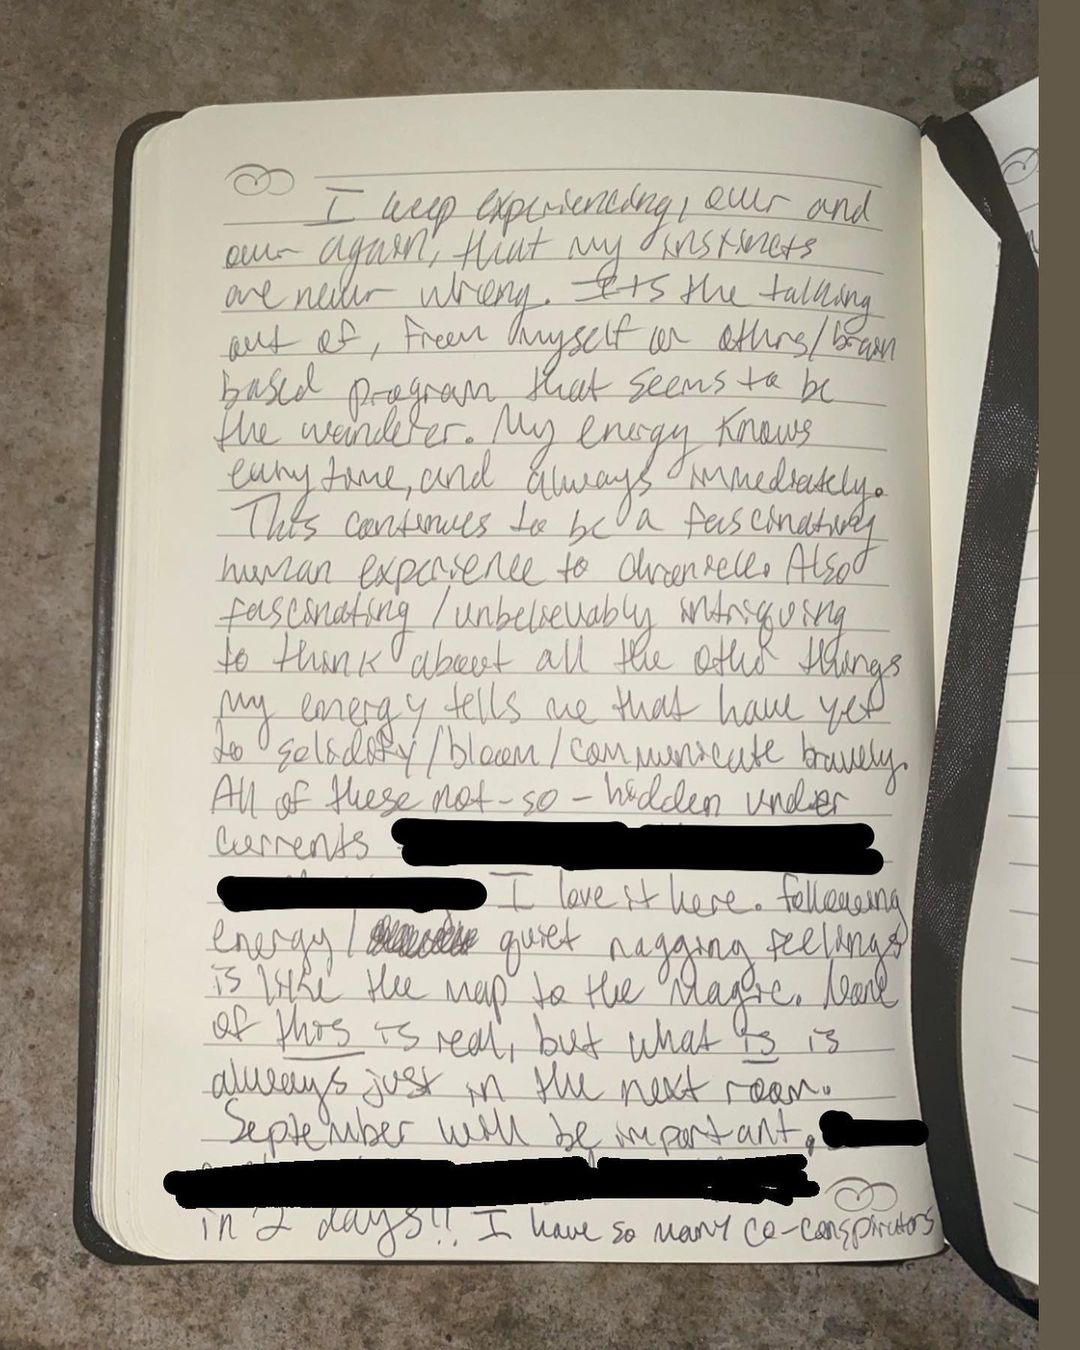 I keep experiencing, over and
over again, that my instincts
are never wrong. It's the talking
out of, from myself or others/brain
based program that seems to be
the wanderer. My energy knows
every time, and always immediately.
This continues to be a fascinating
human experience to chronicle. Also
fascinating / unbelievably intriguing
to think about all the other things
my energy tells me that have yet
to solidify / bloom / communicate bravely.
All of these not-so-hidden under
currents
I love it here. Following
energy / quiet nagging feelings
is like the map to the magic. None
of this is real, but what is is
always just in the next room.
September will be important.
in 2 days!! I have so many co-conspirators